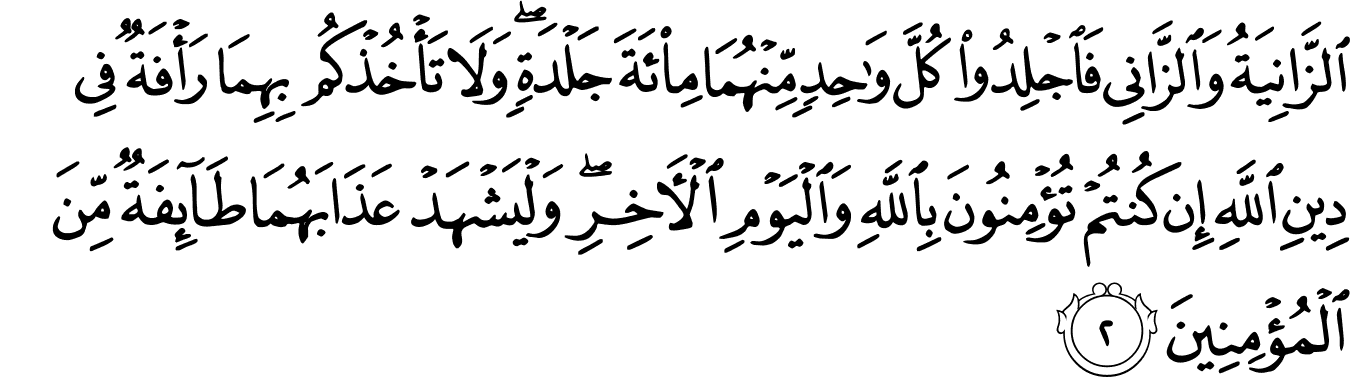 ٱلزَّانِيَةُ وَٱلزَّانِى فَٱجْلِدُوا۟ كُلَّ وَٰحِدٍ مِّنْهُمَا مِا۟ئَةَ جَلْدَةٍ ۖ وَلَا تَأْخُذْكُم بِهِمَا رَأْفَةٌ فِى
دِينِ ٱللَّهِ إِن كُنتُمْ تُؤْمِنُونَ بِٱللَّهِ وَٱلْيَوْمِ ٱلْـَٔاخِرِ ۖ وَلْيَشْهَدْ عَذَابَهُمَا طَآئِفَةٌ مِّنَ
ٱلْمُؤْمِنِينَ ٢